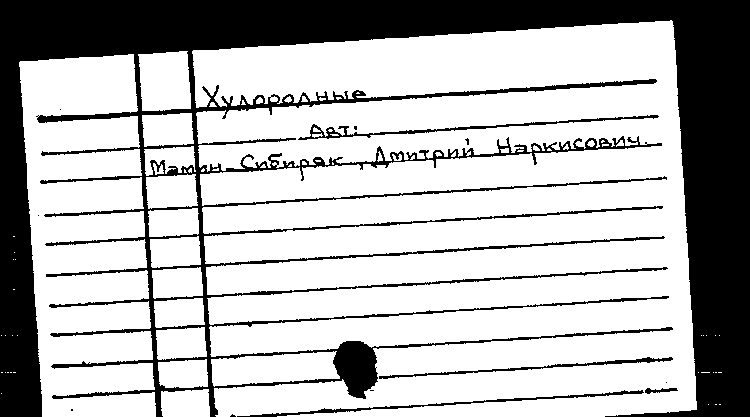 Худородные
Авт:.
Мамин-Сибиряк, Дмитрий Наркисович.